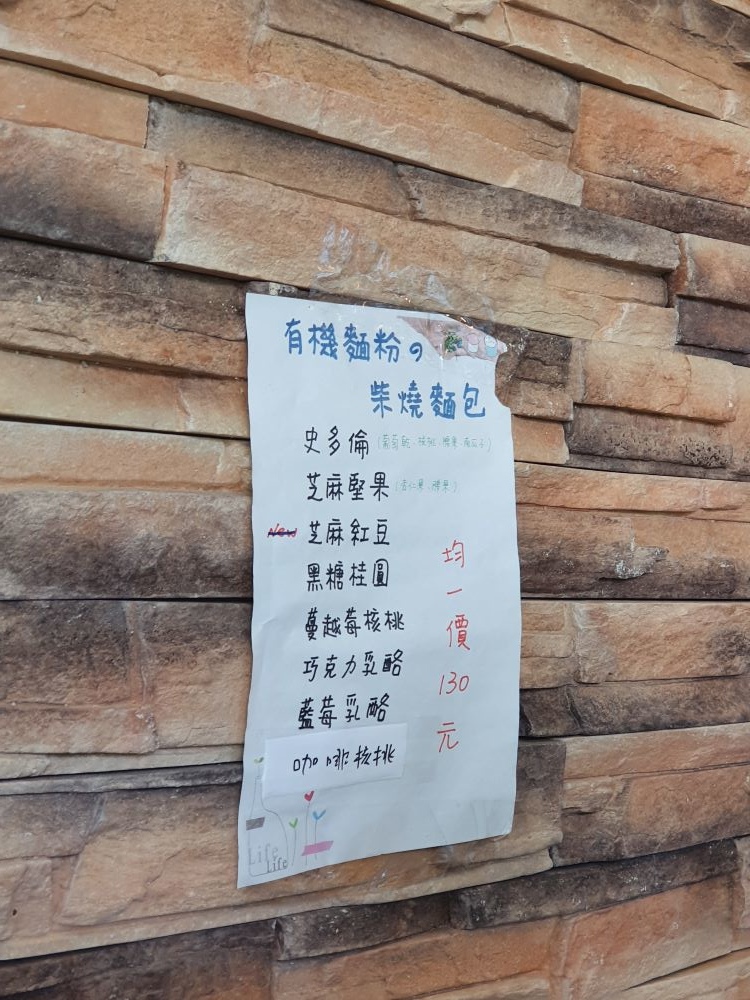 有機麵粉の
柴燒麵包
史多倫(葡萄乾、核桃、腰果、南瓜子)
芝麻堅果(杏仁果、腰果)
New 芝麻紅豆
黑糖桂圓
蔓越莓核桃
巧克力乳酪
藍莓乳酪
咖啡核桃
均一價130元
Life
Life